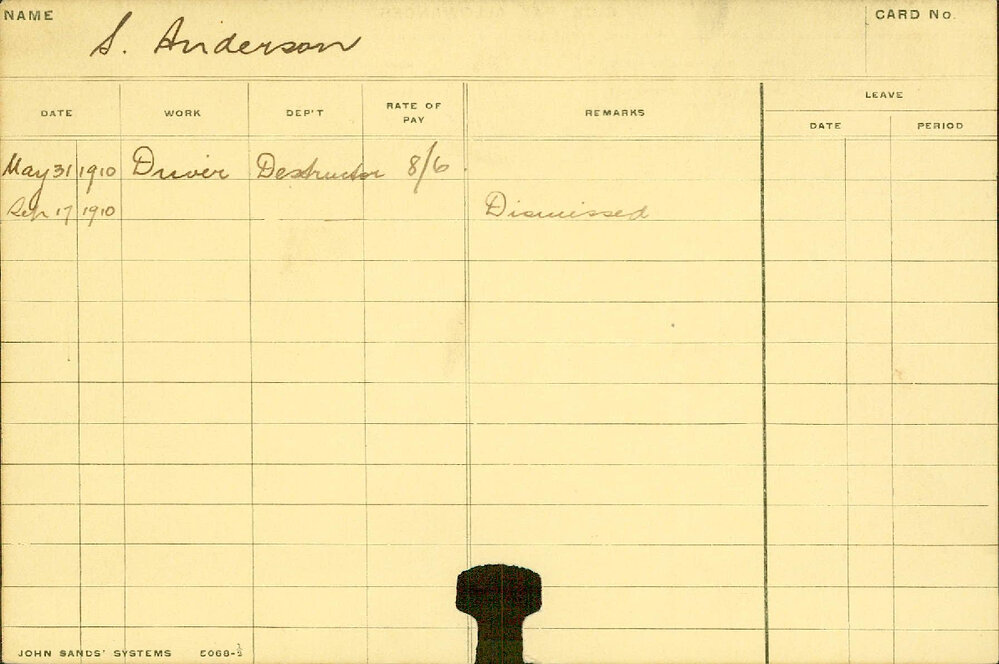 NAME
S. Anderson
CARD No.
DATE WORK DEP'T RATE OF PAY REMARKS LEAVE
DATE PERIOD
May 31 1910 Driver Destructor 8/6
Sep 17 1910 Dismissed
JOHN SANDS' SYSTEMS 5068-½